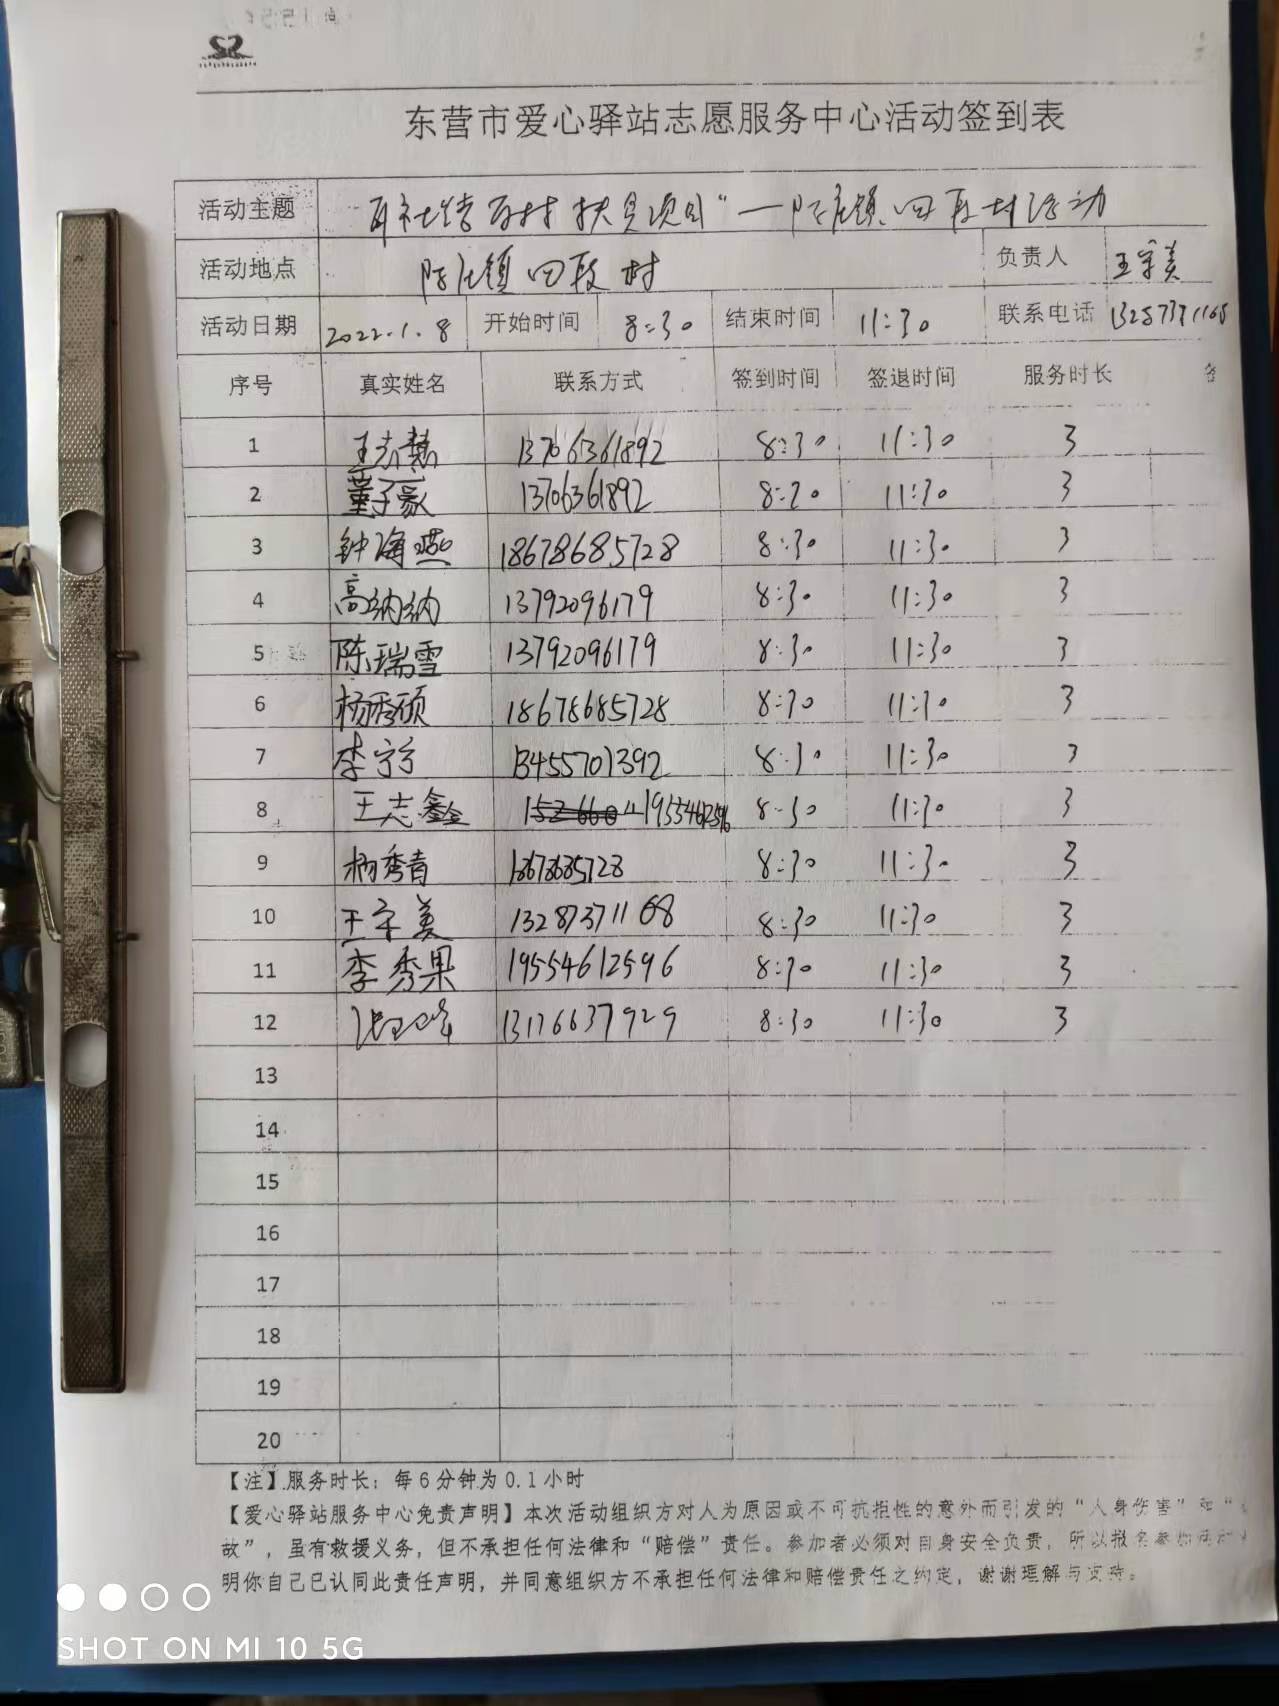 东营市爱心驿站志愿服务中心活动签到表
活动主题 百社情百村扶贫项目"—陈庄镇四段村活动
活动地点 陈庄镇四段村 负责人 王宗美
活动日期 2022.1.8 开始时间 8:30 结束时间 11:30 联系电话 13287371168
序号 真实姓名 联系方式 签到时间 签退时间 服务时长
1 王志慧 13706361892 8:30 11:30 3
2 董子豪 13706361892 8:30 11:30 3
3 钟海燕 18678685728 8:30 11:30 3
4 高纳纳 13792096179 8:30 11:30 3
5 陈瑞雪 13792096179 8:30 11:30 3
6 杨秀硕 18678685728 8:30 11:30 3
7 李宁宁 13455701392 8:30 11:30 3
8 王志鑫 19554612596 8:30 11:30 3
9 杨秀青 18678685728 8:30 11:30 3
10 王宗美 13287371168 8:30 11:30 3
11 李秀果 19554612596 8:30 11:30 3
12 13176637929 8:30 11:30 3
13
14
15
16
17
18
19
20
【注】服务时长：每6分钟为0.1小时
【爱心驿站服务中心免责声明】本次活动组织方对人为原因或不可抗拒性的意外而引发的“人身伤害”和“
故”，虽有救援义务，但不承担任何法律和“赔偿”责任。参加者必须对自身安全负责，所以报名参加活动
明你自己已认同此责任声明，并同意组织方不承担任何法律和赔偿责任之约定，谢谢理解与支持。
SHOT ON MI 10 5G